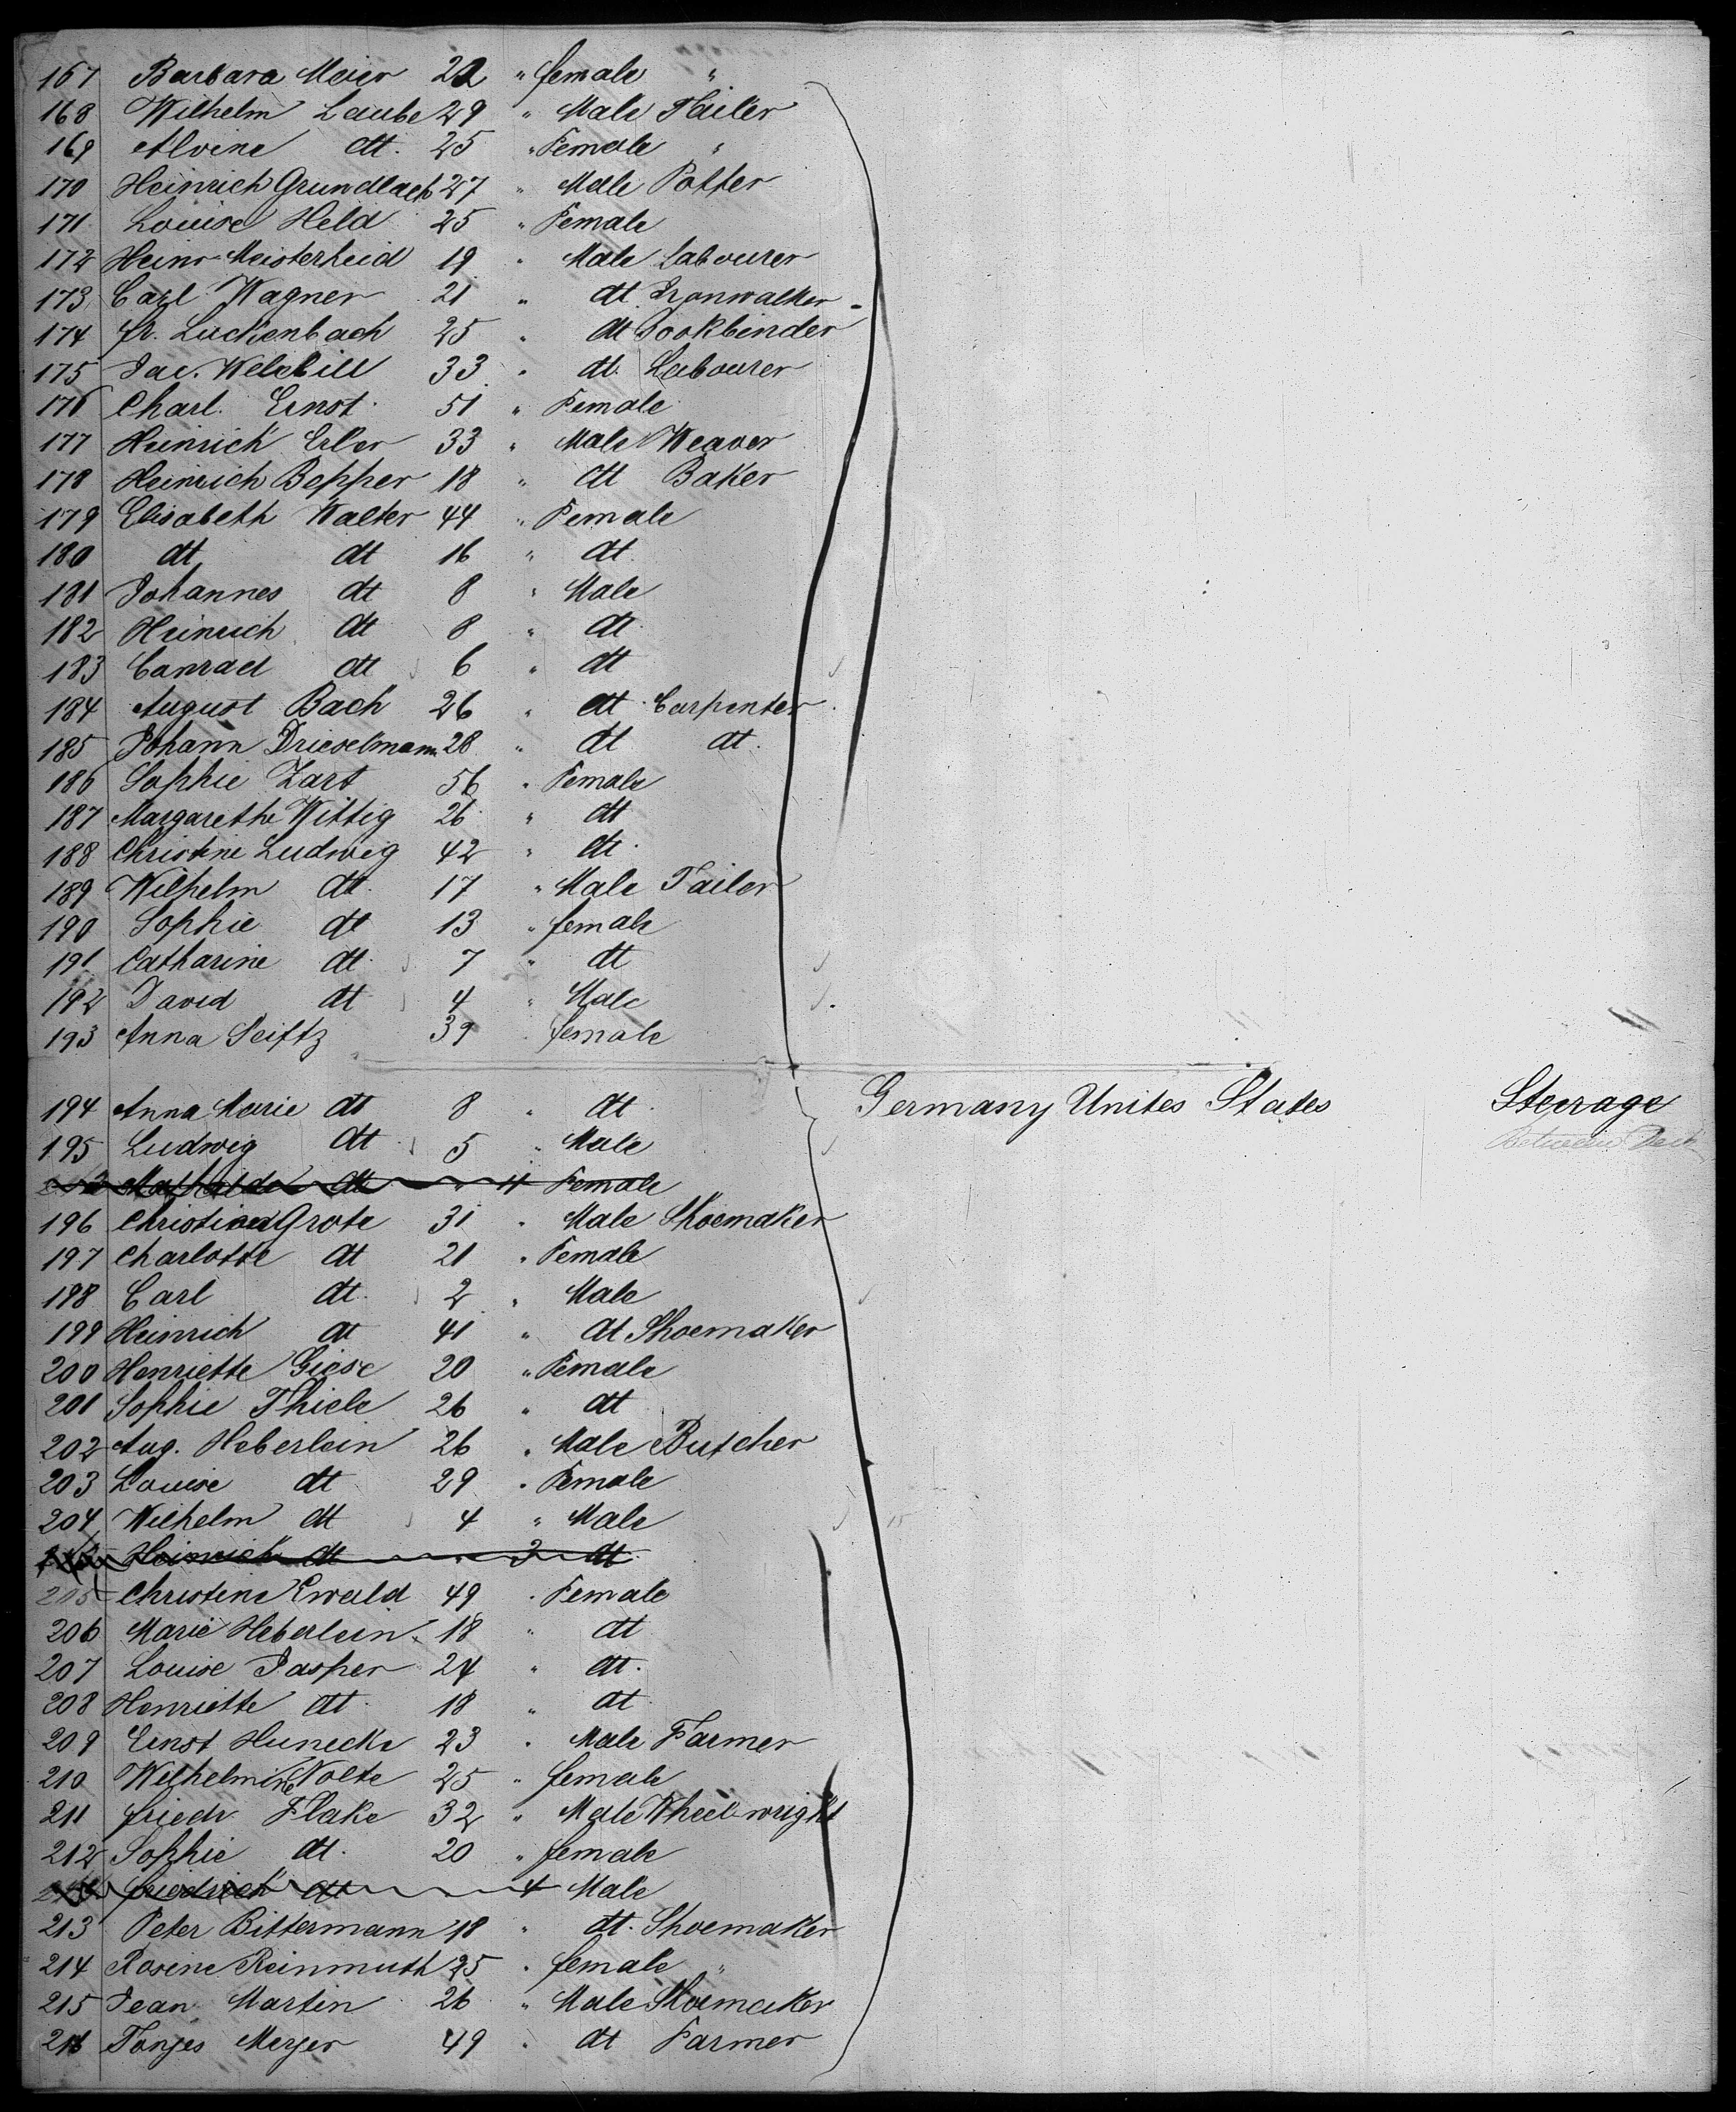 167 Barbara Meier 22 " female "
168 Wilhelm Laube 29 " Male Tailer
169 Alvine dt. 25 " Female "
170 Heinrich Grundlach 27 " Male Potter
171 Louise Held 25 " Female
172 Heinr Meisterheid 19 " Male Labourer
173 Carl Wagner 21 " dt Ironwalker
174 Fr. Luckenbach 25 " dt Bookbinder
175 Jac. 33 " dt. Labourer
176 Charl. Ernst 51 " Female
177 Heinrich Erler 33 " Male Weaver
178 Heinrich Bepper 18 " dt Baker
179 Elisabeth Walter 44 " Female
180 dt dt 16 " dt.
181 Johannes dt 8 " Male
182 Heinrich dt 8 " dt.
183 Conrad dt 6 " dt
184 August Bach 26 " dt Carpenter
185 Johann Drieselmann 28 " dt dt.
186 Sophie Zart 56 " Female
187 Margarethe Wittig 26 " dt
188 Christine Ludwig 42 " dt.
189 Wilhelm dt. 17 " Male Tailor
190 Sophie dt 13 " female
191 Catharine dt. 7 " dt
192 David dt 4 " Male
193 Anna Seiftz 39 " female
194 Anna Marie dt 8 " dt. Germany Unites States Steerage
195 Ludwig dt 5 " Male Between Deck
Mathilde dt " 4 Female
196 Christian Grote 31 " Male Shoemaker
197 Charlotte dt 21 " Female
198 Carl dt. 2 " Male
199 Heinrich dt 41 " dt Shoemaker
200 Henriette Giese 20 " Female
201 Sophie Thiele 26 " dt
202 Aug. Heberlein 26 " Male Butcher
203 Louise dt 29 " Female
204 Wilhelm dt 4 " Male 15
Heinrich dt " 3 dt.
205 Christine Ewald 49 " Female
206 Marie Heberlein 18 " dt
207 Louise Jasper 24 " dt.
208 Henriette dt. 18 " dt
209 Ernst Hunecke 23 " Male Farmer
210 Wilhelmine Nolte 25 " female
211 Friedr Flake 32 " Male Wheelwright
212 Sophie dt. 20 " female
Friedrich dt 4 Male
213 Peter Bittermann 18 " dt. Shoemaker
214 Rosine Reinmuth 25 " female "
215 Jean Martin 26 " Male Shoemaker
216 Tonjes Meyer 49 " dt Farmer